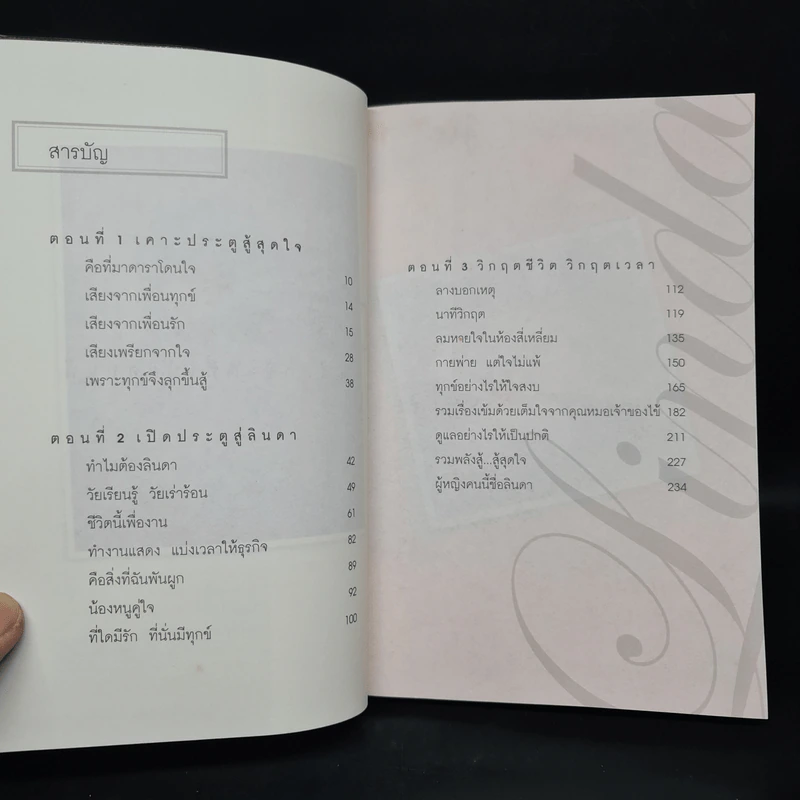 สารบัญ
ตอนที่ 1 เคาะประตูสู้สุดใจ
คือที่มาดาราโดนใจ 10
เสียงจากเพื่อนทุกข์ 14
เสียงจากเพื่อนรัก 15
เสียงเพรียกจากใจ 28
เพราะทุกข์จึงลุกขึ้นสู้ 38
ตอนที่ 2 เปิดประตูสู่ลินดา
ทำไมต้องลินดา 42
วัยเรียนรู้ วัยเร่าร้อน 49
ชีวิตนี้เพื่องาน 61
ทำงานแสดง แบ่งเวลาให้ธุรกิจ 82
คือสิ่งที่ฉันพันผูก 89
น้องหนูคู่ใจ 92
ที่ใดมีรัก ที่นั่นมีทุกข์ 100
ตอนที่ 3 วิกฤตชีวิต วิกฤตเวลา
ลางบอกเหตุ 112
นาทีวิกฤต 119
ลมหายใจในห้องสี่เหลี่ยม 135
กายพ่าย แต่ใจไม่แพ้ 150
ทุกข์อย่างไรให้ใจสงบ 165
รวมเรื่องเข้มด้วยเต็มใจจากคุณหมอเจ้าของไข้ 182
ดูแลอย่างไรให้เป็นปกติ 211
รวมพลังสู้...สู้สุดใจ 227
ผู้หญิงคนนี้ชื่อลินดา 234
Linda